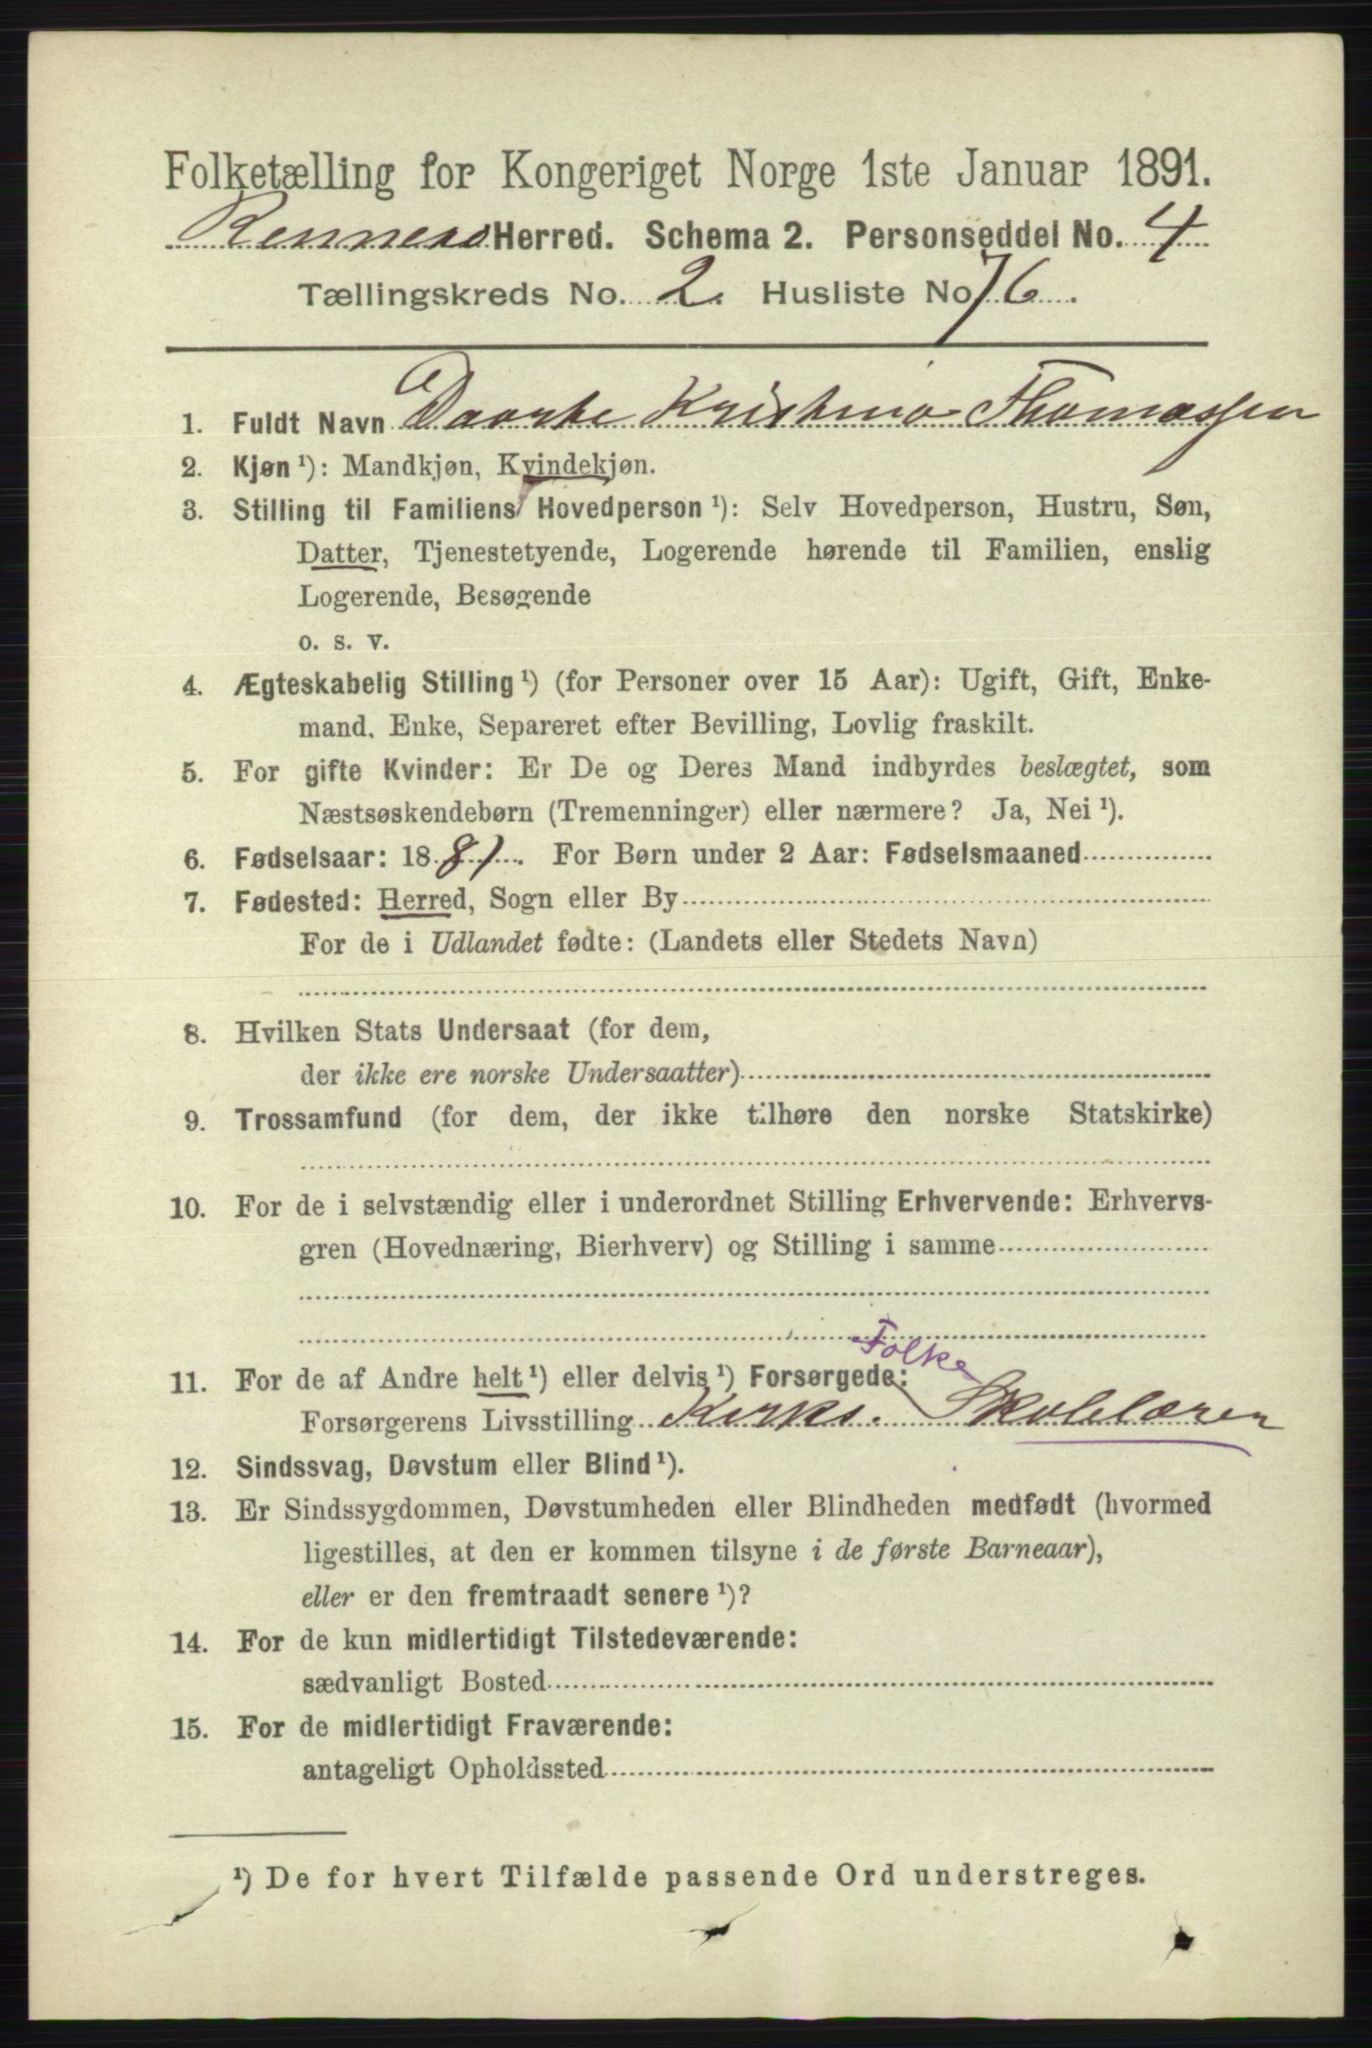 Folketælling for Kongeriget Norge 1ste Januar 1891.
Rennesø Herred. Schema 2. Personseddel No. 4
Tællingskreds No. 2. Husliste No 76.
1. Fuldt Navn Daarte Kristina Thomassen
2. Kjøn ¹): Mandkjøn, Kvindekjøn.
3. Stilling til Familiens Hovedperson ¹): Selv Hovedperson, Hustru, Søn,
Datter, Tjenestetyende, Logerende hørende til Familien, enslig
Logerende, Besøgende
o. s. v.
4. Ægteskabelig Stilling ¹) (for Personer over 15 Aar): Ugift, Gift, Enke-
mand, Enke, Separeret efter Bevilling, Lovlig fraskilt.
5. For gifte Kvinder: Er De og Deres Mand indbyrdes beslægtet, som
Næstsøskendebørn (Tremenninger) eller nærmere? Ja, Nei ¹).
6. Fødselsaar: 1881. For Børn under 2 Aar: Fødselsmaaned
7. Fødested: Herred, Sogn eller By
For de i Udlandet fødte: (Landets eller Stedets Navn)
8. Hvilken Stats Undersaat (for dem,
der ikke ere norske Undersaatter)
9. Trossamfund (for dem, der ikke tilhøre den norske Statskirke)
10. For de i selvstændig eller i underordnet Stilling Erhvervende: Erhvervs-
gren (Hovednæring, Bierhverv) og Stilling i samme
Folke
11. For de af Andre helt ¹) eller delvis ¹) Forsørgede:
Forsørgerens Livsstilling Kirks. Skolelærer
12. Sindssvag, Døvstum eller Blind ¹).
13. Er Sindssygdommen, Døvstumheden eller Blindheden medfødt (hvormed
ligestilles, at den er kommen tilsyne i de første Barneaar),
eller er den fremtraadt senere ¹)?
14. For de kun midlertidigt Tilstedeværende:
sædvanligt Bosted
15. For de midlertidigt Fraværende:
antageligt Opholdssted
¹) De for hvert Tilfælde passende Ord understreges.